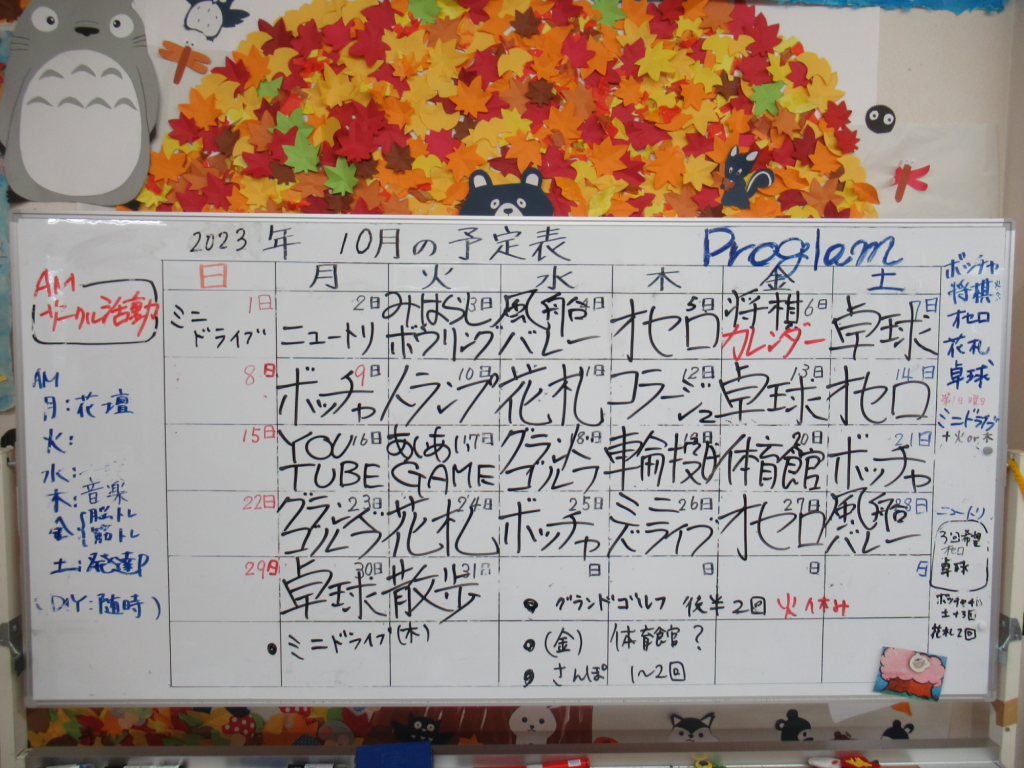 2023 年 10月の予定表
Proglam
日 月 火 水 木 金 土
1日 2日 3日 4日 5日 6日 7日
ミニドライブ ニュートリ みはらしボウリング 風船バレー オセロ 将棋カレンダー 卓球
8日 9日 10日 11日 12日 13日 14日
ボッチャ トランプ 花札 コラージュ 卓球 オセロ
15日 16日 17日 18日 19日 20日 21日
YOU TUBE あぃあぃGAME 輪投げ 体育館 ボッチャ
22日 23日 24日 25日 26日 27日 28日
花札 ボッチャ ミニドライブ オセロ 風船バレー
29日 30日 31日 日 日 日 日
卓球 散歩
• グランドゴルフ 後半2回 火休み
• ミニドライブ(木)
• (金) 体育館?
• さんぽ 1〜2回
AM
サークル活動
AM
月:花壇
火:
水:
木:音楽
金{脳トレ
筋トレ
土:発達P
(DIY:随時)
ボッチャ
将棋
オセロ
花札
卓球
ミニドライブ
+火or木
ニュートリ
3回希望
オセロ
卓球
花札2回